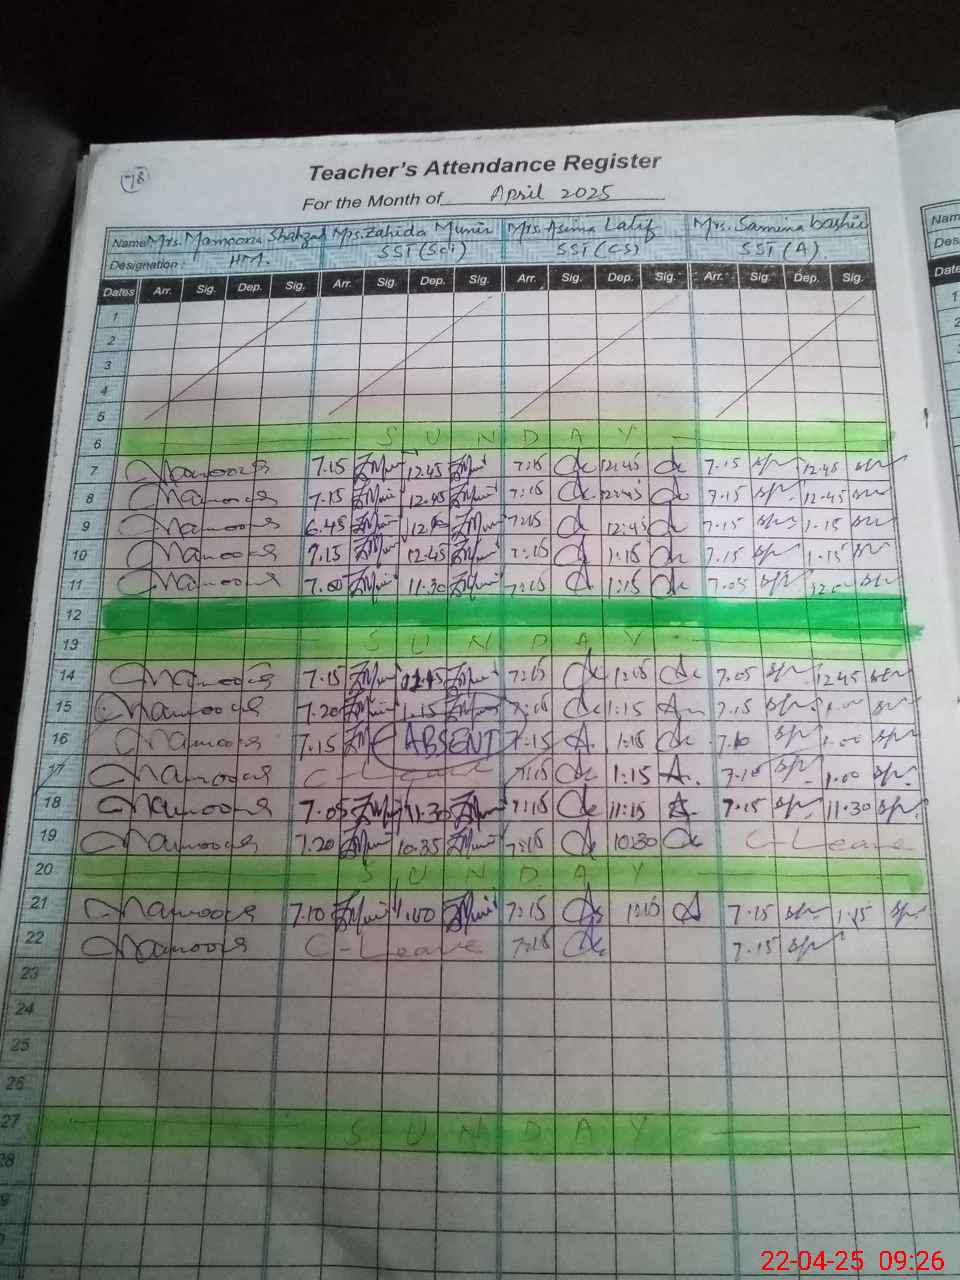 78
Teacher's Attendance Register
For the Month of April 2025
Name Mrs. Mamoona Shahzad Mrs. Zahida Munir Mrs. Asima Latif Mrs. Samina bashir
Designation: HM. SST (Sci) SST (CS) SST (A).
Dates Arr. Sig. Dep. Sig. Arr. Sig. Dep. Sig. Arr. Sig. Dep. Sig. Arr. Sig. Dep. Sig.
1
2
3
4
5
6 SUNDAY
7 Mamoona 7.15 ZMunir 12.45 ZMunir 7:15 12:45 7.15 12.45
8 Mamoona 7.15 ZMunir 12.45 ZMunir 7:15 12:45 7.15 12.45
9 Mamoona 6.45 ZMunir ZMunir 7:15 12:45 7.15 1.15
10 Mamoona 7.15 ZMunir 12.45 ZMunir 7:15 1:15 7.15 1.15
11 Mamoona 7.00 ZMunir 11.30 ZMunir 7:15 1:15 7.05
12
13 SUNDAY
14 Mamoona 7.15 ZMunir ZMunir 7:15 7.05 12 45
15 Mamoona 7.20 ZMunir 1.15 ZMunir 1:15 7.15
16 Mamoona 7.15 ABSENT 7:15 1:15 7.10 1.00
17 Mamoona C-Leave 7:15 1:15 7.10 1.00
18 Mamoona 7.05 ZMunir 11.30 ZMunir 7:15 11:15 7.15 11.30
19 Mamoona 7.20 ZMunir 10.35 ZMunir 7:15 10:30 C-Leave
20 SUNDAY
21 Mamoona 7.10 ZMunir ZMunir 7:15 1:15 7.15 1.15
22 Mamoona C-Leave 7:15 7.15
23
24
25
26
27 SUNDAY
28
22-04-25 09:26